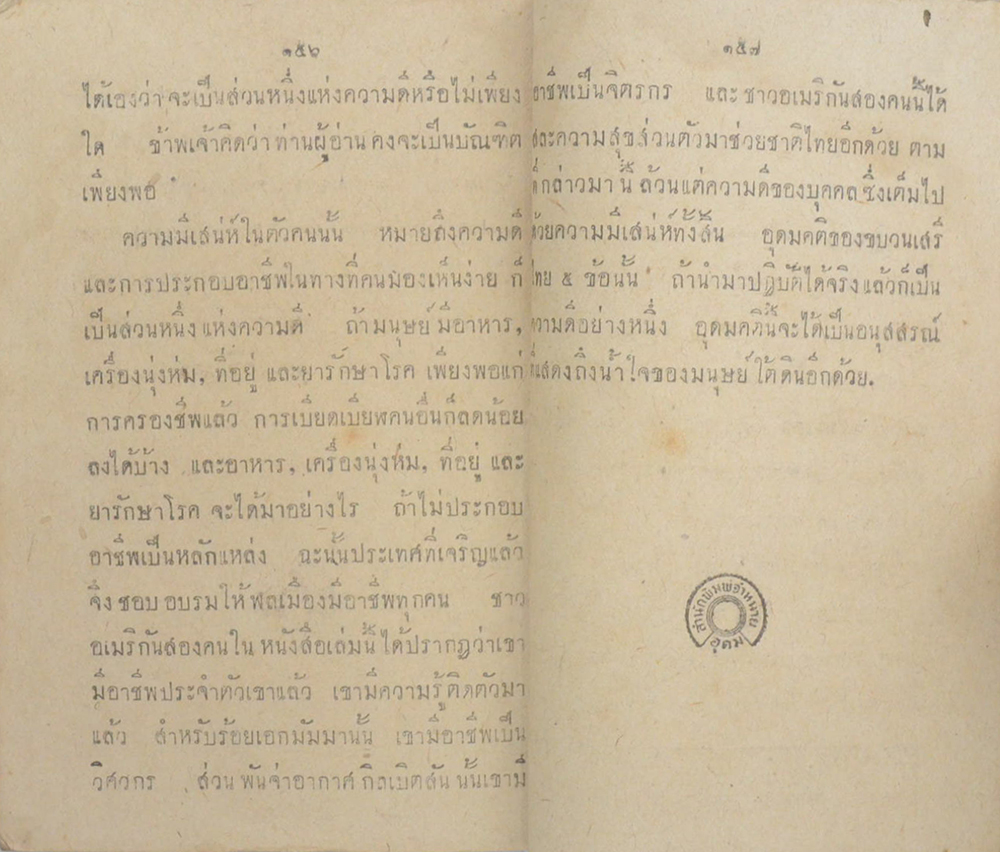 ๑๕๖
ได้เองว่า จะเป็นส่วนหนึ่งแห่งความดีหรือไม่เพียง
ใด ข้าพเจ้าคิดว่า ท่านผู้อ่าน คงจะเป็นบัณฑิต
เพียงพอ
ความมีเสน่ห์ในตัวคนนั้น หมายถึงความดี
และการประกอบอาชีพในทางที่คนมองเห็นง่าย ก็
เป็นส่วนหนึ่ง แห่งความดี ถ้ามนุษย์ มีอาหาร,
เครื่องนุ่งห่ม, ที่อยู่ และยารักษาโรค เพียงพอแก่
การครองชีพแล้ว การเบียดเบียฬคนอื่นก็ลดน้อย
ลงได้บ้าง และอาหาร, เครื่องนุ่งห่ม, ที่อยู่ และ
ยารักษาโรค จะได้มาอย่างไร ถ้าไม่ประกอบ
อาชีพเป็นหลักแหล่ง ฉะนั้นประเทศที่เจริญแล้ว
จึง ชอบ อบรมให้ พลเมืองมีอาชีพทุกคน ชาว
อเมริกันสองคนใน หนังสือเล่มนี้ ได้ปรากฏว่าเขา
มีอาชีพประจำตัวเขาแล้ว เขามีความรู้ติดตัวมา
แล้ว สำหรับร้อยเอกมัมมานั้น เขามีอาชีพเป็น
วิศวกร ส่วน พันจ่าอากาศ กิลเบิตสัน นั้นเขามี
๑๕๗
อาชีพเป็นจิตรกร และ ชาวอเมริกันสองคนนี้ได้
สละความสุขส่วนตัวมาช่วยชาติไทยอีกด้วย ตาม
ที่กล่าวมานี้ ล้วนแต่ความดีของบุคคล ซึ่งเต็มไป
ด้วยความมีเสน่ห์ทั้งสิ้น อุดมคติของขบวนเสรี
ไทย ๕ ข้อนั้น ถ้านำมาปฏิบัติได้จริง แล้วก็เป็น
ความดีอย่างหนึ่ง อุดมคตินี้จะได้เป็นอนุสสรณ์
ที่แสดงถึงน้ำใจของมนุษย์ ใต้ดินอีกด้วย.
สำนักพิมพ์จำหน่าย
อุดม